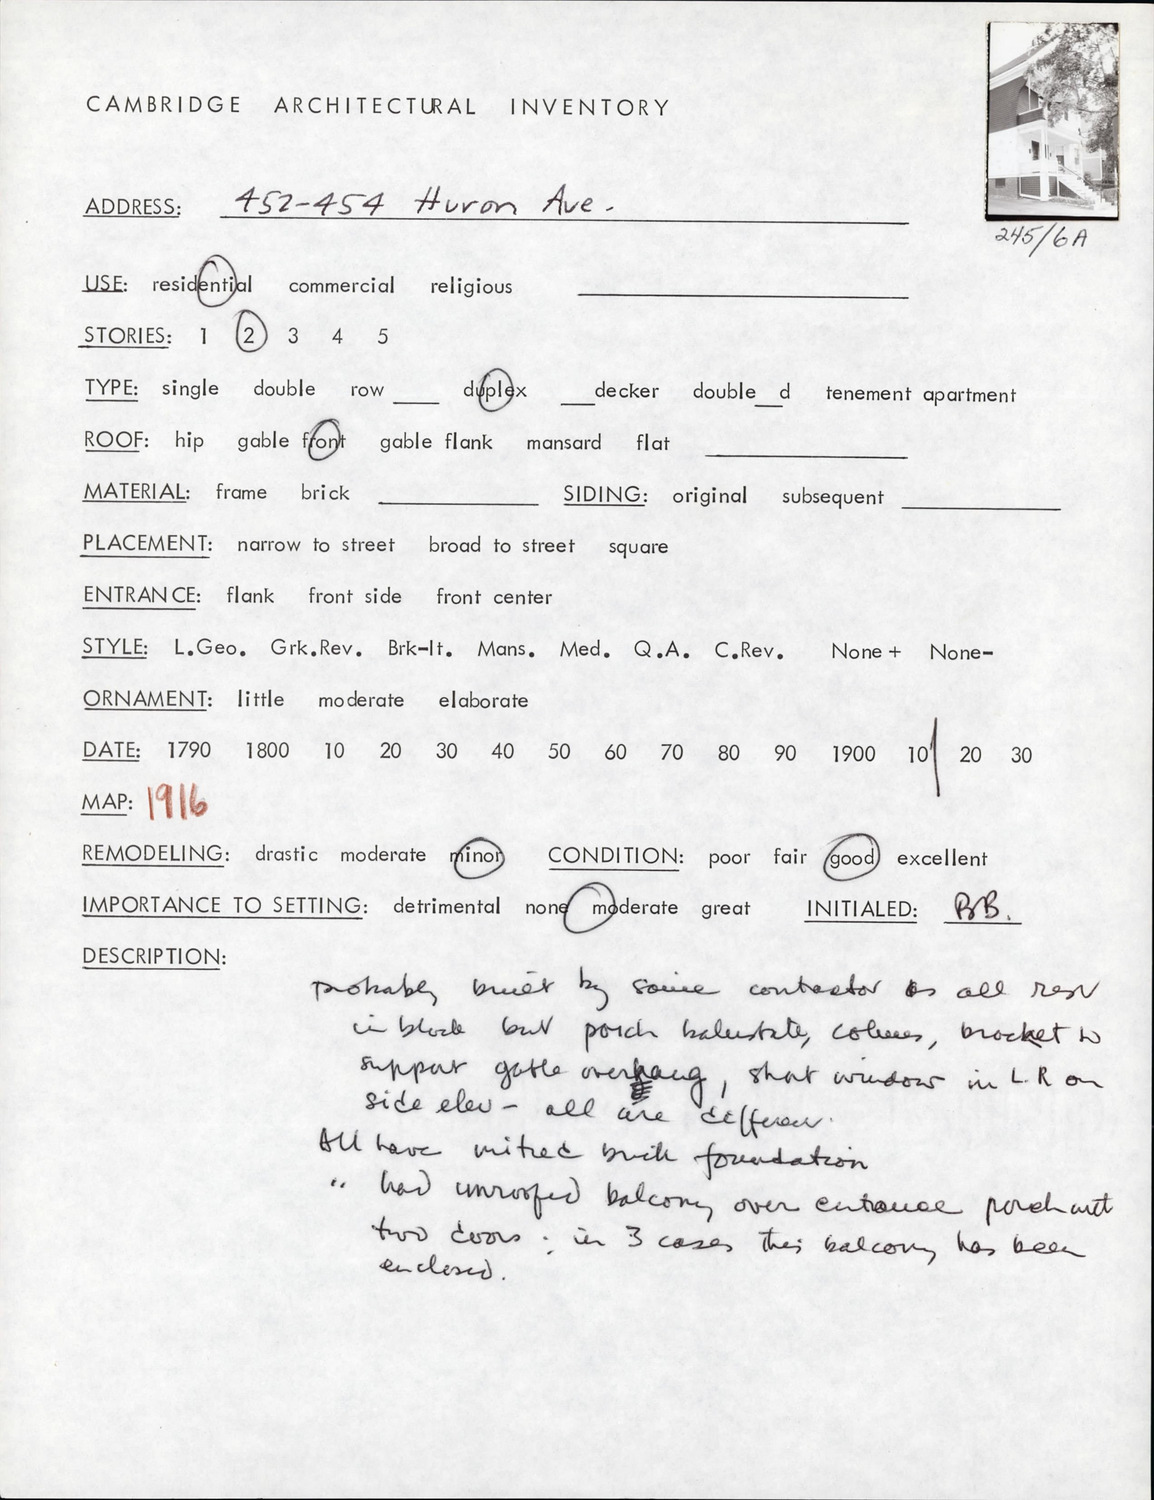 CAMBRIDGE ARCHITECTURAL INVENTORY
ADDRESS: 452-454 Huron Ave.
245/6A
USE: residential commercial religious
STORIES: 1 2 3 4 5
TYPE: single double row ___ duplex ___decker double__d tenement apartment
ROOF: hip gable front gable flank mansard flat
MATERIAL: frame brick SIDING: original subsequent
PLACEMENT: narrow to street broad to street square
ENTRANCE: flank front side front center
STYLE: L.Geo. Grk.Rev. Brk-It. Mans. Med. Q.A. C.Rev. None + None-
ORNAMENT: little moderate elaborate
DATE: 1790 1800 10 20 30 40 50 60 70 80 90 1900 10 20 30
MAP: 1916
REMODELING: drastic moderate minor CONDITION: poor fair good excellent
IMPORTANCE TO SETTING: detrimental none moderate great INITIALED: BB.
DESCRIPTION:
probably built by same contractor as all rest
in block but porch balustrade, columns, bracket to
support gable overhang, short window in L.R on
side elev - all are different.
All have mitred brick foundation
" had unroofed balcony over entrance porch with
two doors; in 3 cases this balcony has been
enclosed.